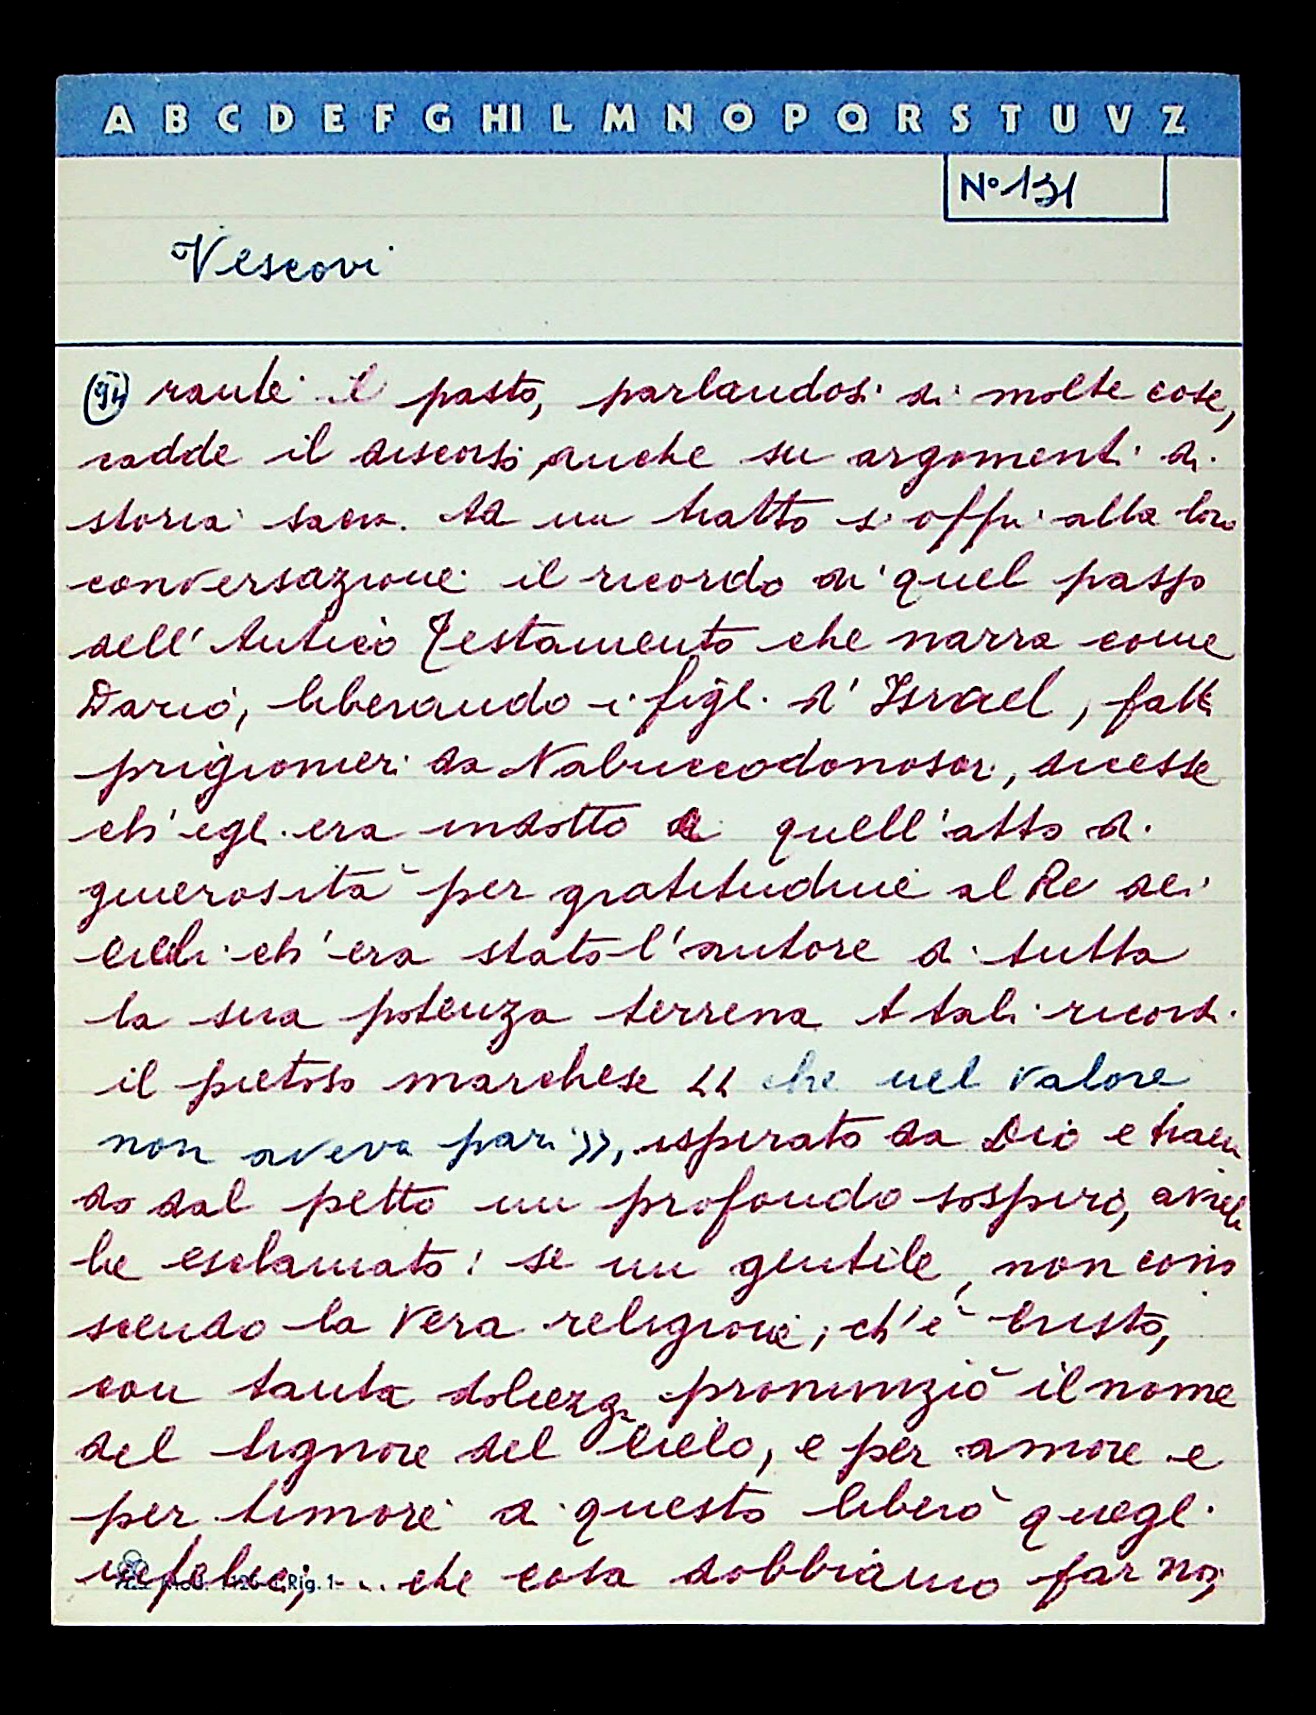 A B C D E F G HI L M N O P Q R S T U V Z
N° 131
Vescovi
rante il pasto, parlandosi di molte cose,
cadde il discorso, anche su argomenti di
storia sacra. Ad un tratto si offrì alla loro
conversazione il ricordo di quel passo
dell'Antico Testamento che narra come
Dario, liberando i figli d'Israel, fatti
prigionieri da Nabuccodonosor, dicesse
ch'egli era indotto a quell'atto di
generosità per gratitudine al Re dei
cieli ch'era stato l'autore di tutta
la sua potenza terrena A tali ricordi
il pietoso marchese << che nel valore
non aveva pari >>, ispirato da Dio e traen
do dal petto un profondo sospiro, avreb
be esclamato: se un gentile, non cono
scendo la vera religione, ch'è Cristo,
con tanta dolcezza pronunziò il nome
del Signore del Cielo, e per amore e
per timore di questo liberò quegli
infelici, ... che cosa dobbiamo far noi,